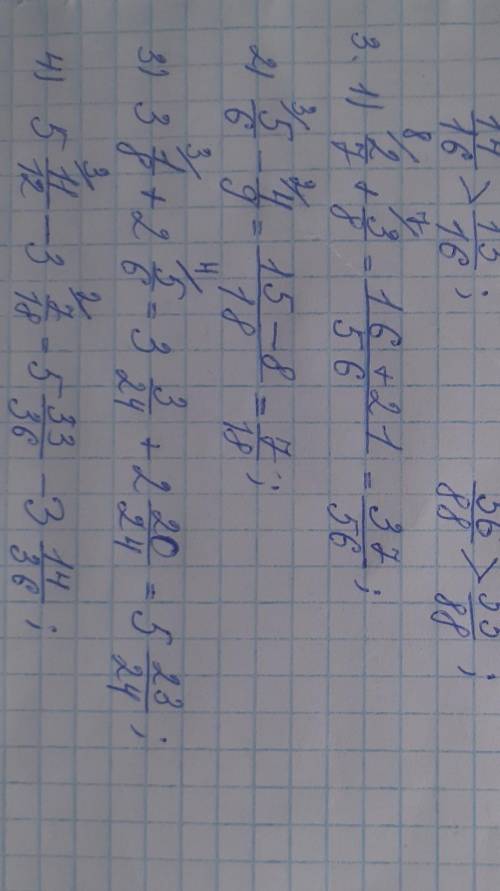 14/16 > 13/16; 56/88 > 55/88;
3. 1) 2/7 ⁸⁄ + 3/8 ⁷⁄ = (16+21)/56 = 37/56;
2) 5/6 ³⁄ - 4/9 ²⁄ = (15-8)/18 = 7/18;
3) 3 1/8 ³⁄ + 2 5/6 ⁴⁄ = 3 3/24 + 2 20/24 = 5 23/24;
4) 5 11/12 ³⁄ - 3 7/18 ²⁄ = 5 33/36 - 3 14/36;